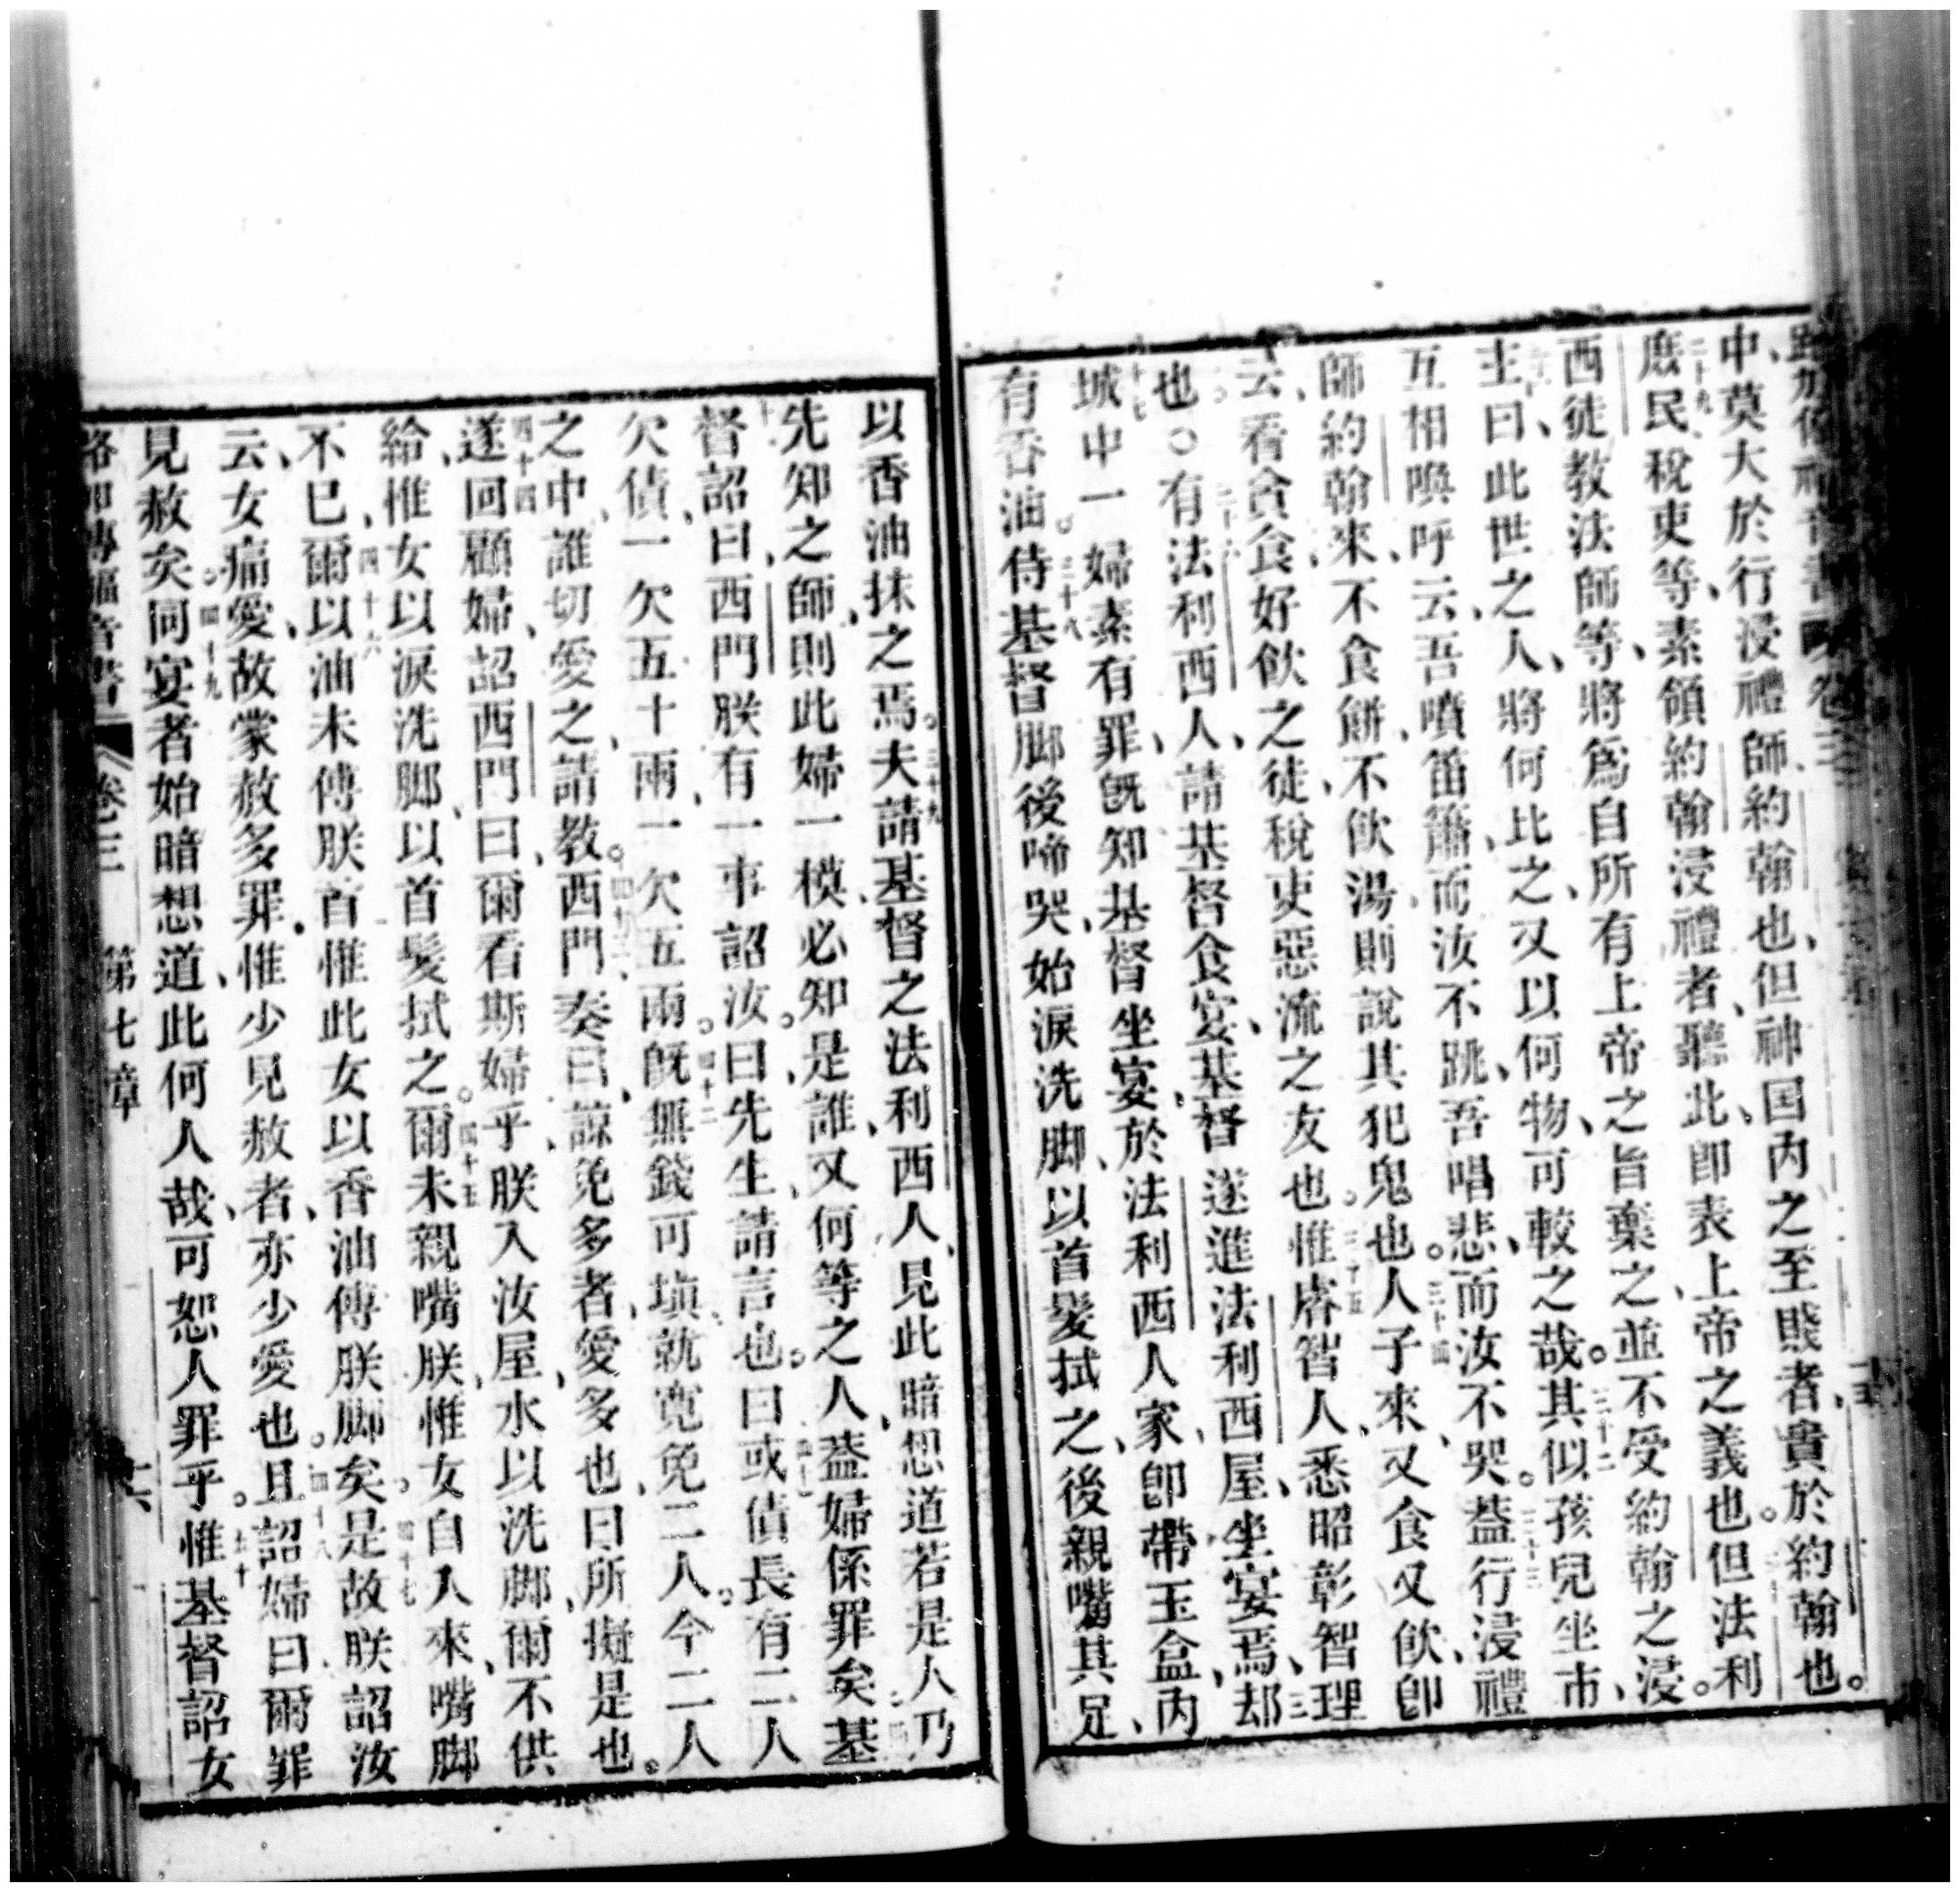 中、莫大於行浸禮師約翰也、但神国內之至賤者、貴於約翰也。
庶民、稅吏等、素領約翰浸禮者、聽此、卽表上帝之義也。但法利
西徒、教法師等、將爲自所有上帝之旨棄之、並不受約翰之浸。
主曰、此世之人、將何比之、又以何物、可較之哉。三十二其似孩兒坐市、
互相喚呼云、吾噴笛簫、而汝不跳、吾唱悲、而汝不哭。三十三蓋行浸禮
師約翰來、不食餅、不飲湯、則說其犯鬼也。三十四人子來、又食又飲、卽
云、看貪食好飲之徒、稅吏惡流之友也。三十五惟睿智人、悉昭彰智理
也○有法利西人、請基督食宴、基督遂進法利西屋、坐宴焉、却
城中一婦素有罪、旣知基督坐宴、於法利西人家、卽帶玉盒、內
有香油。三十八侍基督脚後啼哭、始淚洗脚、以首髮拭之、後親嘴其足、
以香油抹之焉。三十九夫請基督之法利西人、見此暗想道、若是人乃
先知之師、則此婦一模、必知是誰、又何等之人、蓋婦係罪矣、基
督詔曰、西門、朕有一事詔汝。曰、先生、請言也。四十一曰、或債長有二人
欠債、一欠五十兩、一欠五兩。四十二旣無錢可塡、就寬免二人。今二人
之中、誰切愛之、請教。四十三西門奏曰、諒免多者、愛多也、曰、所擬是也。
四十四遂回顧婦、詔西門曰、爾看斯婦乎、朕入汝屋、水以洗脚、爾不供
給、惟女以淚洗脚、以首髮拭之。四十五爾未親嘴朕、惟女自入來、嘴脚
不已、四十六爾以油未傅朕首、惟此女以香油傅朕脚矣。四十七是故朕詔汝
云、女痛愛、故蒙赦多罪、惟少見赦者、亦少愛也。四十八且詔婦曰、爾罪
見赦矣。四十九同宴者始暗想道、此何人哉、可恕人罪乎。五十惟基督詔女
卷三 第七章 十六